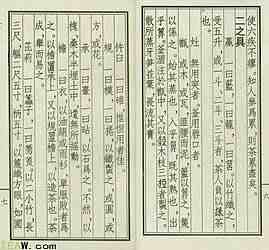 使六疾不瘳。知人參爲累，則茶累盡矣。
二之具
籝 一曰籃，一曰籠，一曰筥。以竹織之，
受五升，或一斗、二斗、三斗者，茶人負以採茶
也。
無用突者。釜用脣口者。
甑 或木或瓦，匪腰而泥，籃以箄之，篾
以系之。始其蒸也，入乎箄，既其熟也，出
乎箄。釜涸注於甑中，又以榖木枝三椏者製之，
散所蒸牙笋并葉，畏流其膏。
六
杵臼 一曰碓，惟恒用者佳。
規 一曰模，一曰棬。以鐵製之，或圓，或
方，或花。
承 一曰臺，一曰砧。以石爲之。不然，以
槐桑木半埋土中，遣無所搖動。
襜 一曰衣。以油絹或雨衫、單服敗者爲
之。以襜置承上，又以規置襜上，以造茶也。茶
成，舉而易之。
芘莉 一曰籝子，一曰篣筤。以二小竹，長
三尺，軀二尺五寸，柄五寸。以篾織方眼，如圃
七